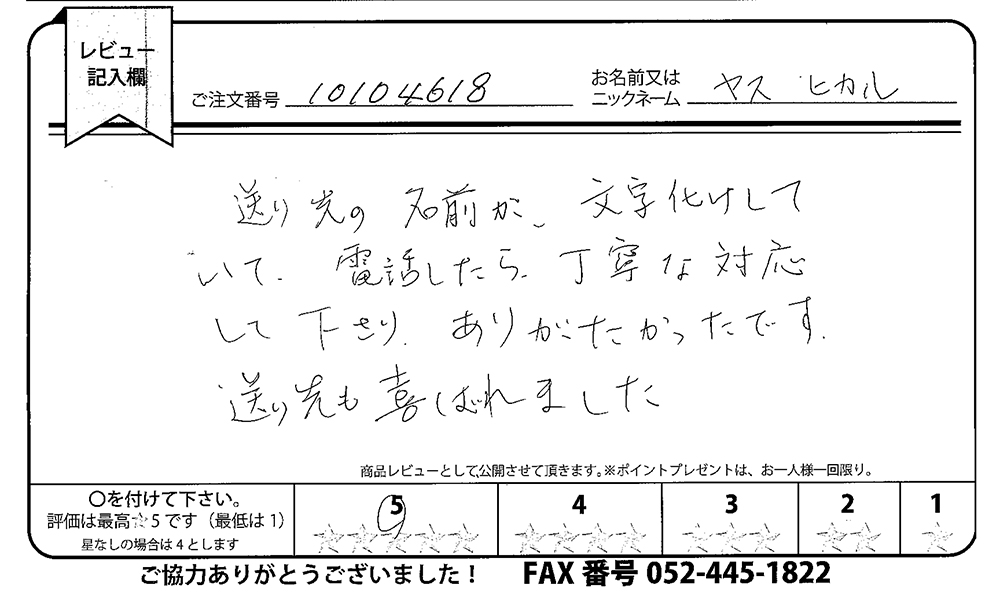 レビュー
記入欄
ご注文番号 10104618
お名前又は
ニックネーム ヤス ヒカル
送り先の名前が、文字化けして
いて、電話したら、丁寧な対応
して下さり、ありがたかったです。
送り先も喜ばれました
商品レビューとして公開させて頂きます。※ポイントプレゼントは、お一人様一回限り。
〇を付けて下さい。
評価は最高☆5です（最低は1）
星なしの場合は4とします
5 4 3 2 1
☆☆☆☆☆ ☆☆☆☆ ☆☆☆ ☆☆ ☆
ご協力ありがとうございました！ FAX番号 052-445-1822